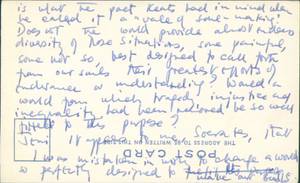 is what the poet Keats had in mind when
he called it a "vale of soul-making".
Does not the world provide almost endless
diversity of those situations, some painful,
some not so, best designed to call forth
from our souls their greatest efforts of
endurance or understanding? Would a
world from which tragedy, injustice and
inequality had been removed be so well
to this purpose?
it appears to me, Socrates, that
I was mistaken in wishing to change a world
so perfectly designed to make our souls
THE ADDRESS TO BE WRITTEN ON THIS SIDE
POST CARD